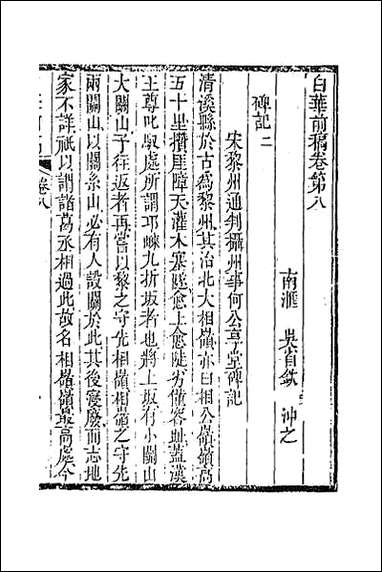 白華前稿卷第八
南滙 吳省欽 沖之
碑記二
宋黎州通判攝州事何公享堂碑記
清溪縣於古為黎州其治北大相嶺亦曰相公嶺嶺高
五十里攢崖障天灌木塞嵸愈上愈陡劣僅容趾蓋漢
王尊叱馭處所謂邛崍九折坂者也將上坂有小關山
大關山予往返者再嘗以黎之守先相嶺相嶺之守先
兩關山以關系山必有人設關於此其後寖廢而志地
家不詳祇以謂諸葛丞相過此故名相嶺嶺最高處今
卷八